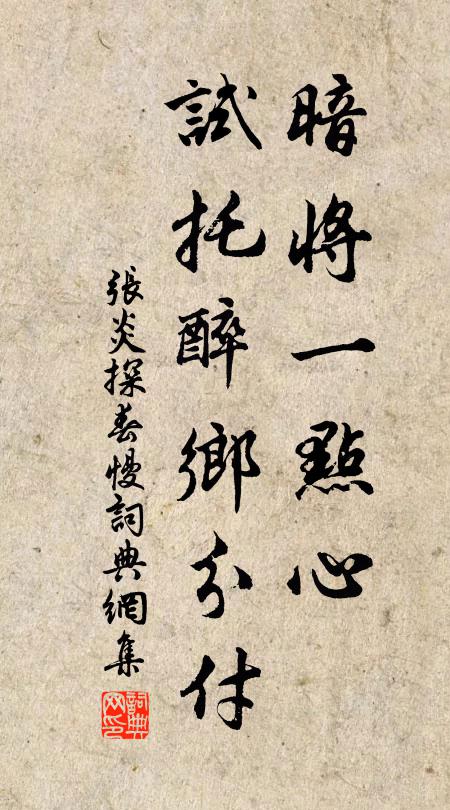 暗將一點心
試托醉鄉分付
張炎探春慢詞典網集
詞典網印